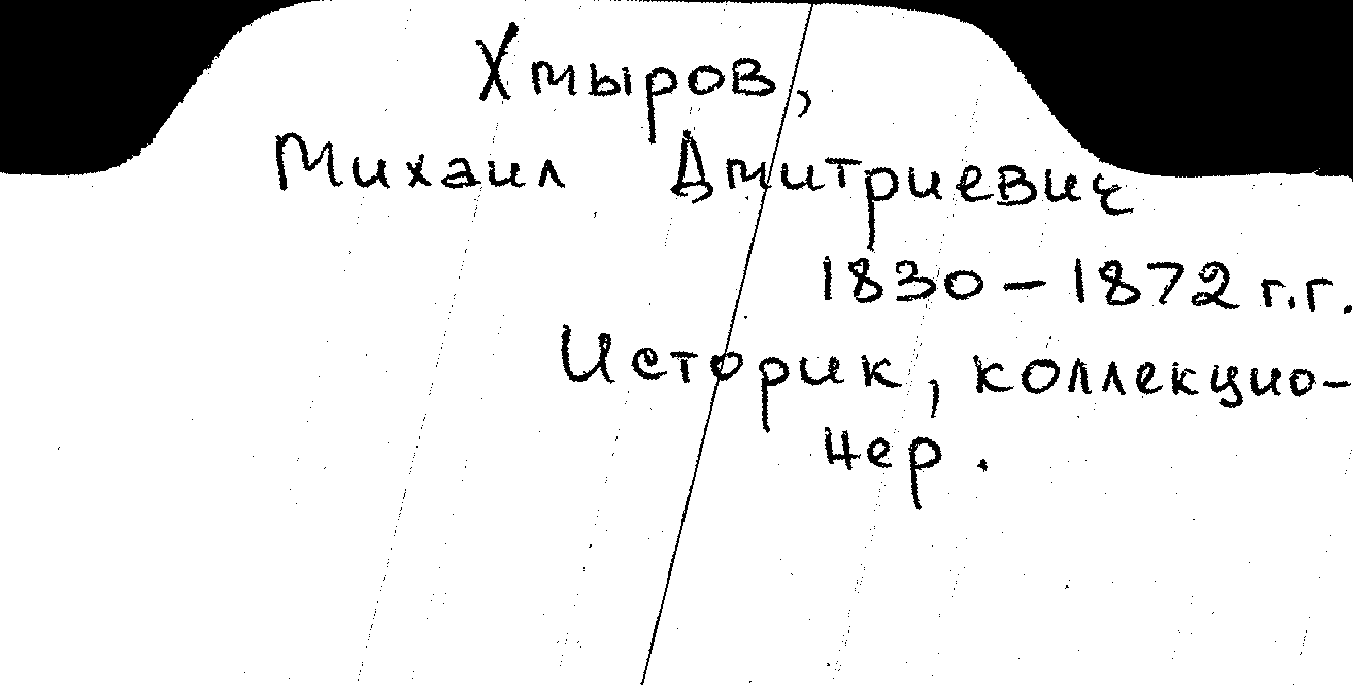 Хмыров,
Михаил Дмитриевич
1830 – 1872 г.г.
Историк, коллекцио-
нер.